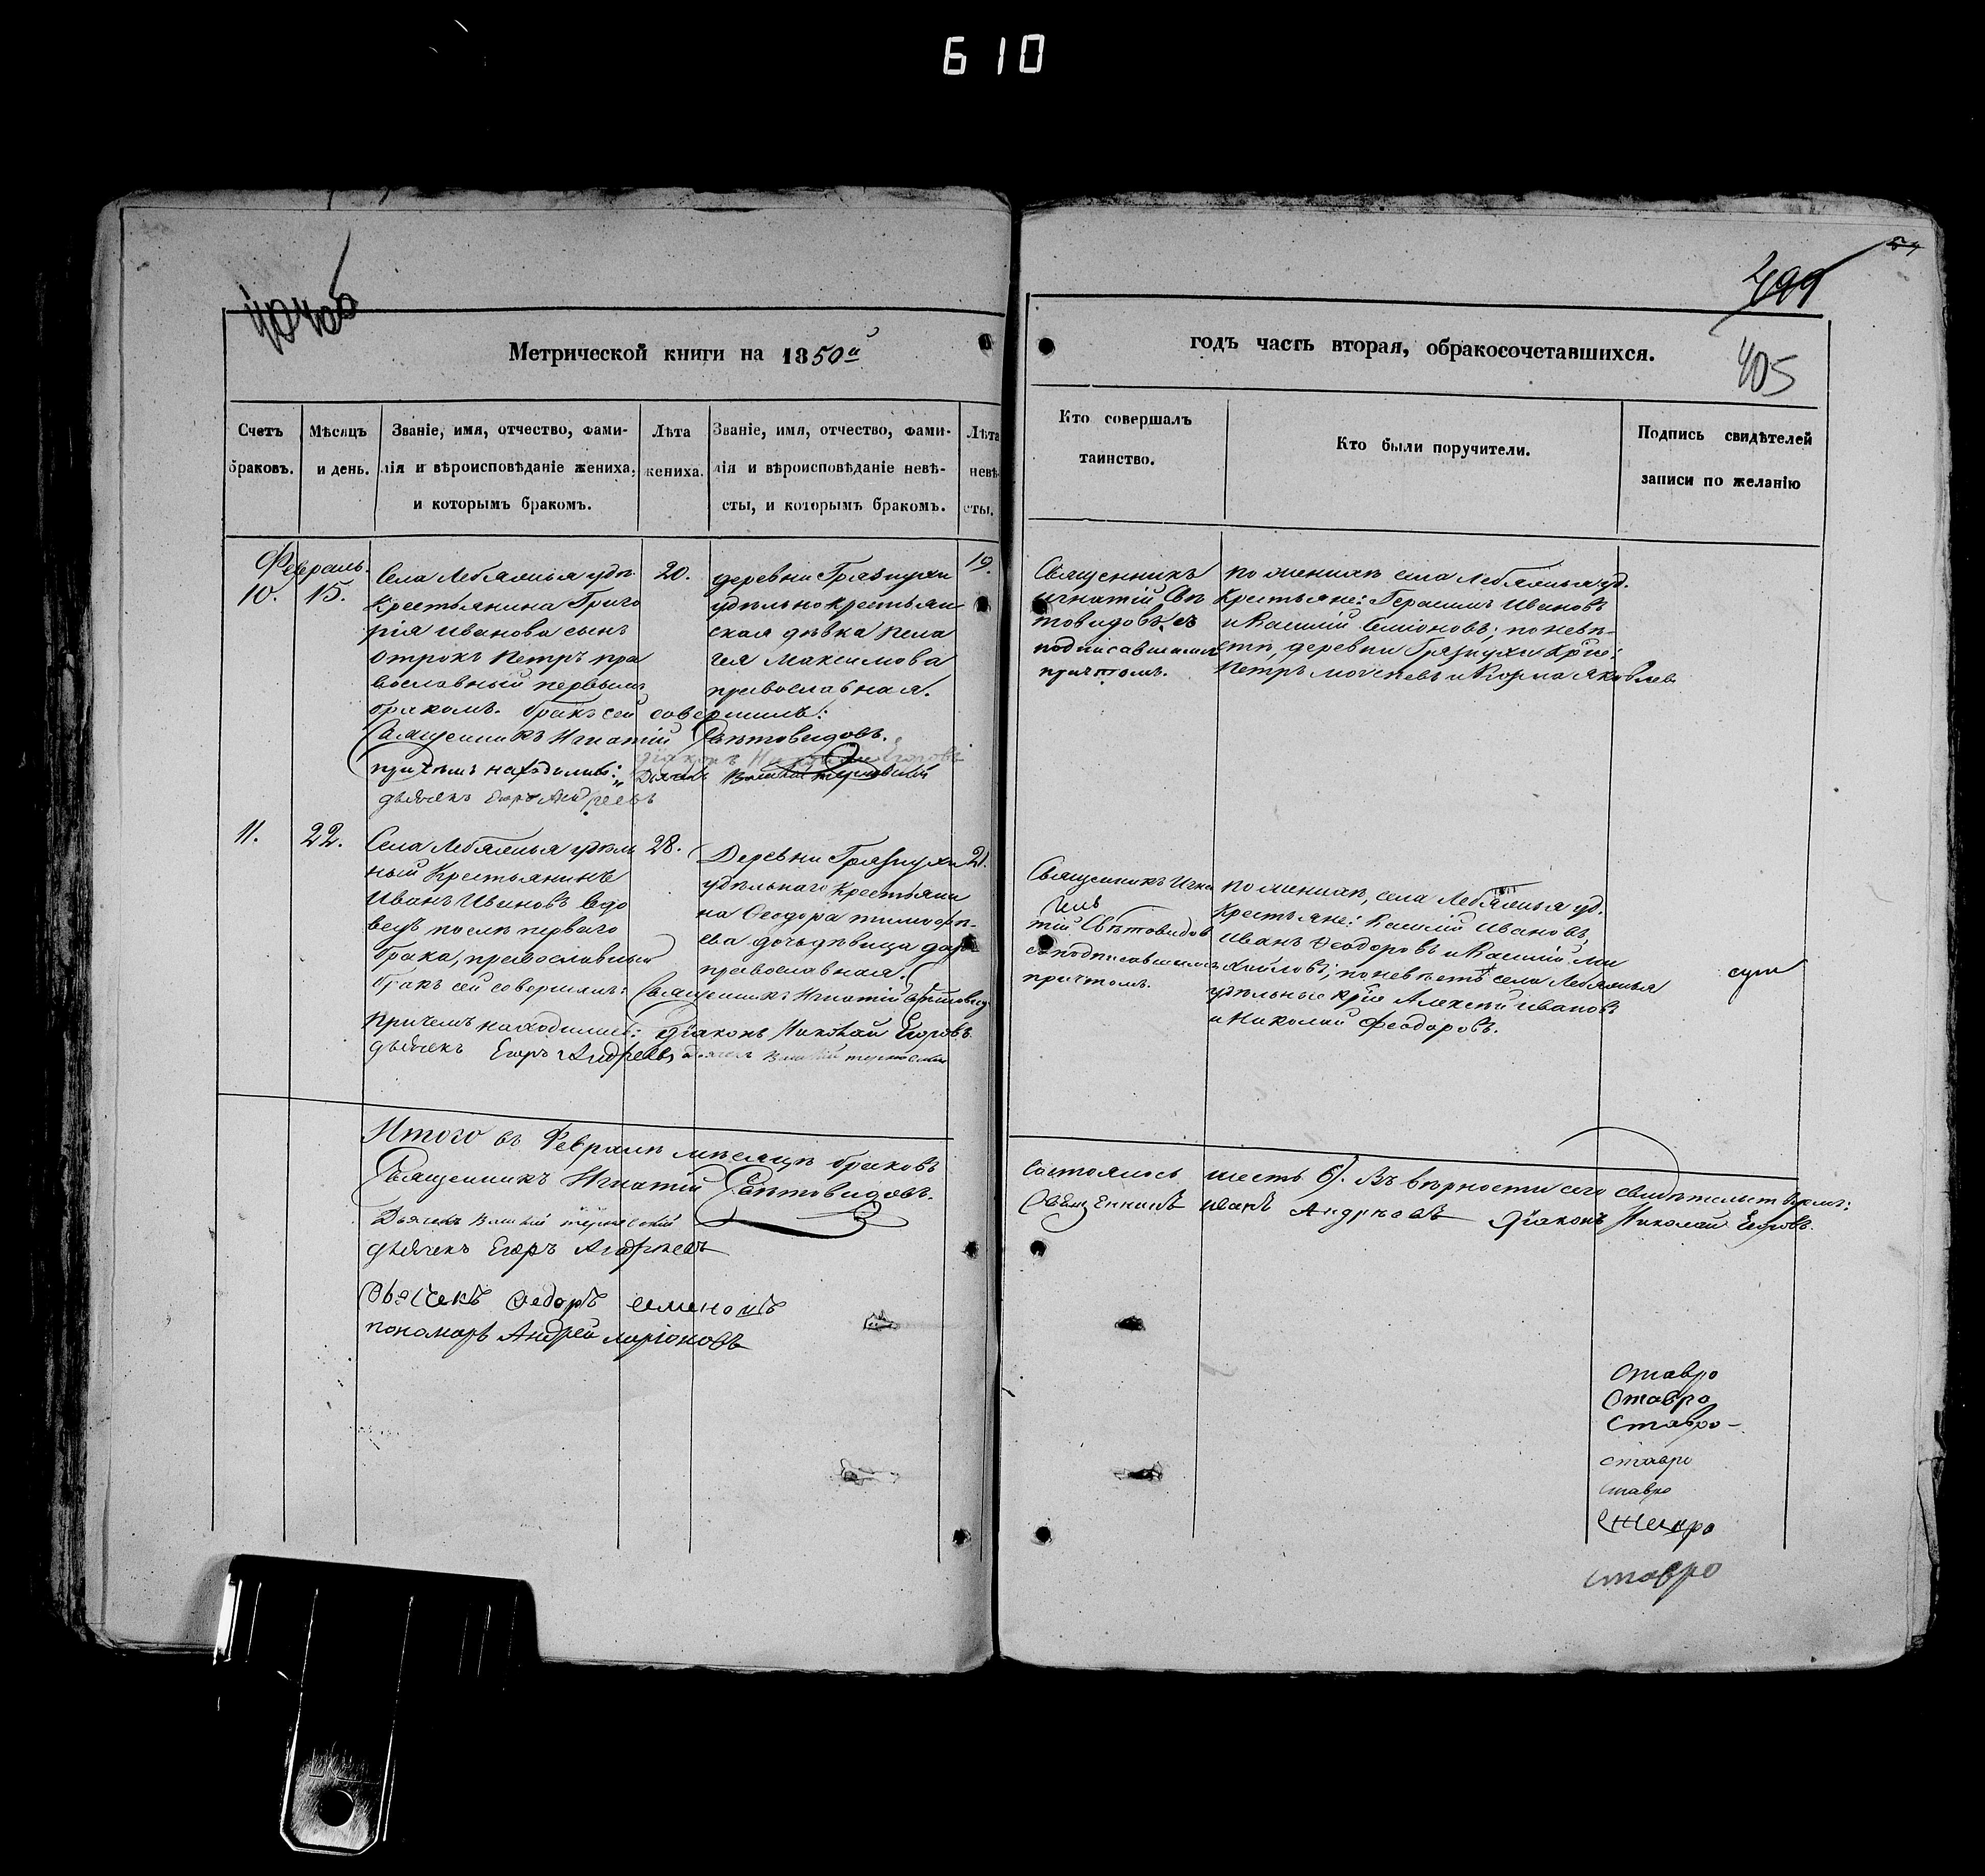 610
54
499
405
Метрической книги на 1850й
годъ часть вторая, обракосочетавшихся.
Счетъ браковъ.
Мѣсяцъ и день.
Званіе, имя, отчество, фами-
лія и вѣроисповѣданіе жениха,
и которымъ бракомъ.
Лѣта
жениха.
Званіе, имя, отчество, фами-
лія и вѣроисповѣданіе невѣ-
сты, и которымъ бракомъ.
Лѣта
невѣ-
сты.
Кто совершалъ
таинство.
Кто были поручители.
Подпись свидѣтелей
записи по желанію
Февраль.
10. 15.
Села Лебяжья удѣ.
Крестьянина Григо
рія Иванова сынъ
отрокъ Петръ пра
вославный первымъ
бракомъ. Бракъ сей совершилъ:
Священникъ Игнатій Свѣтовидовъ.
причемъ находились:
діаконъ Николай Егоровъ
дьячекъ Егоръ Андреевъ
20.
деревни Грязнухи
удѣльно крестьян
ская дѣвка Пела
гея Максимова
православная.
19.
Священникъ
Игнатій Свѣ
товидовъ съ
подписавшимся
причтомъ.
по женихѣ села Лебяжья уд.
Крестьяне: Герасимъ Ивановъ
и Василій Симіоновъ; по невѣ-
стѣ, деревни Грязнухи Крѣс:
Петръ и Козма Яковлев.
11. 22.
Села Лебяжья удѣль
ный Крестьянинъ
Иванъ Ивановъ вдо
вецъ послѣ перваго
брака, православный
бракъ сей совершилъ: Священникъ Игнатій Свѣтовид
Причемъ находились: діаконъ Николай Егоровъ
дьячекъ Егоръ Андреевъ
28.
Деревни Грязнухи
удѣльнаго Крестьяни
на Феодора Тимофѣ-
ева дочь дѣвица Дарья
православная.
21.
Священникъ Игна
тій Свѣтовидов
съ подписавшимся
причтомъ.
по женихѣ, села Лебяжья уд.
Крестьяне: Василій Ивановъ,
Иванъ Феодоровъ и Василій Ми
хайловъ; по невѣстѣ села Лебяжья
удѣльные крѣс Алексѣй Ивановъ
и Николай Феодоровъ.
Итого въ Февралѣ мѣсяцѣ браковъ
состоялось шесть 6). Въ вѣрности сего свидѣтельствуемъ:
Священникъ Игнатій Свѣтовидовъ.
Священникъ Иванъ Андреевъ Діаконъ Николай Егоровъ.
дьячекъ Егоръ Андреевъ
Дьячекъ Федоръ Семеновъ
пономарь Андрей Ларіоновъ
ставро
ставро
ставро-
ставро
ставро
ставро